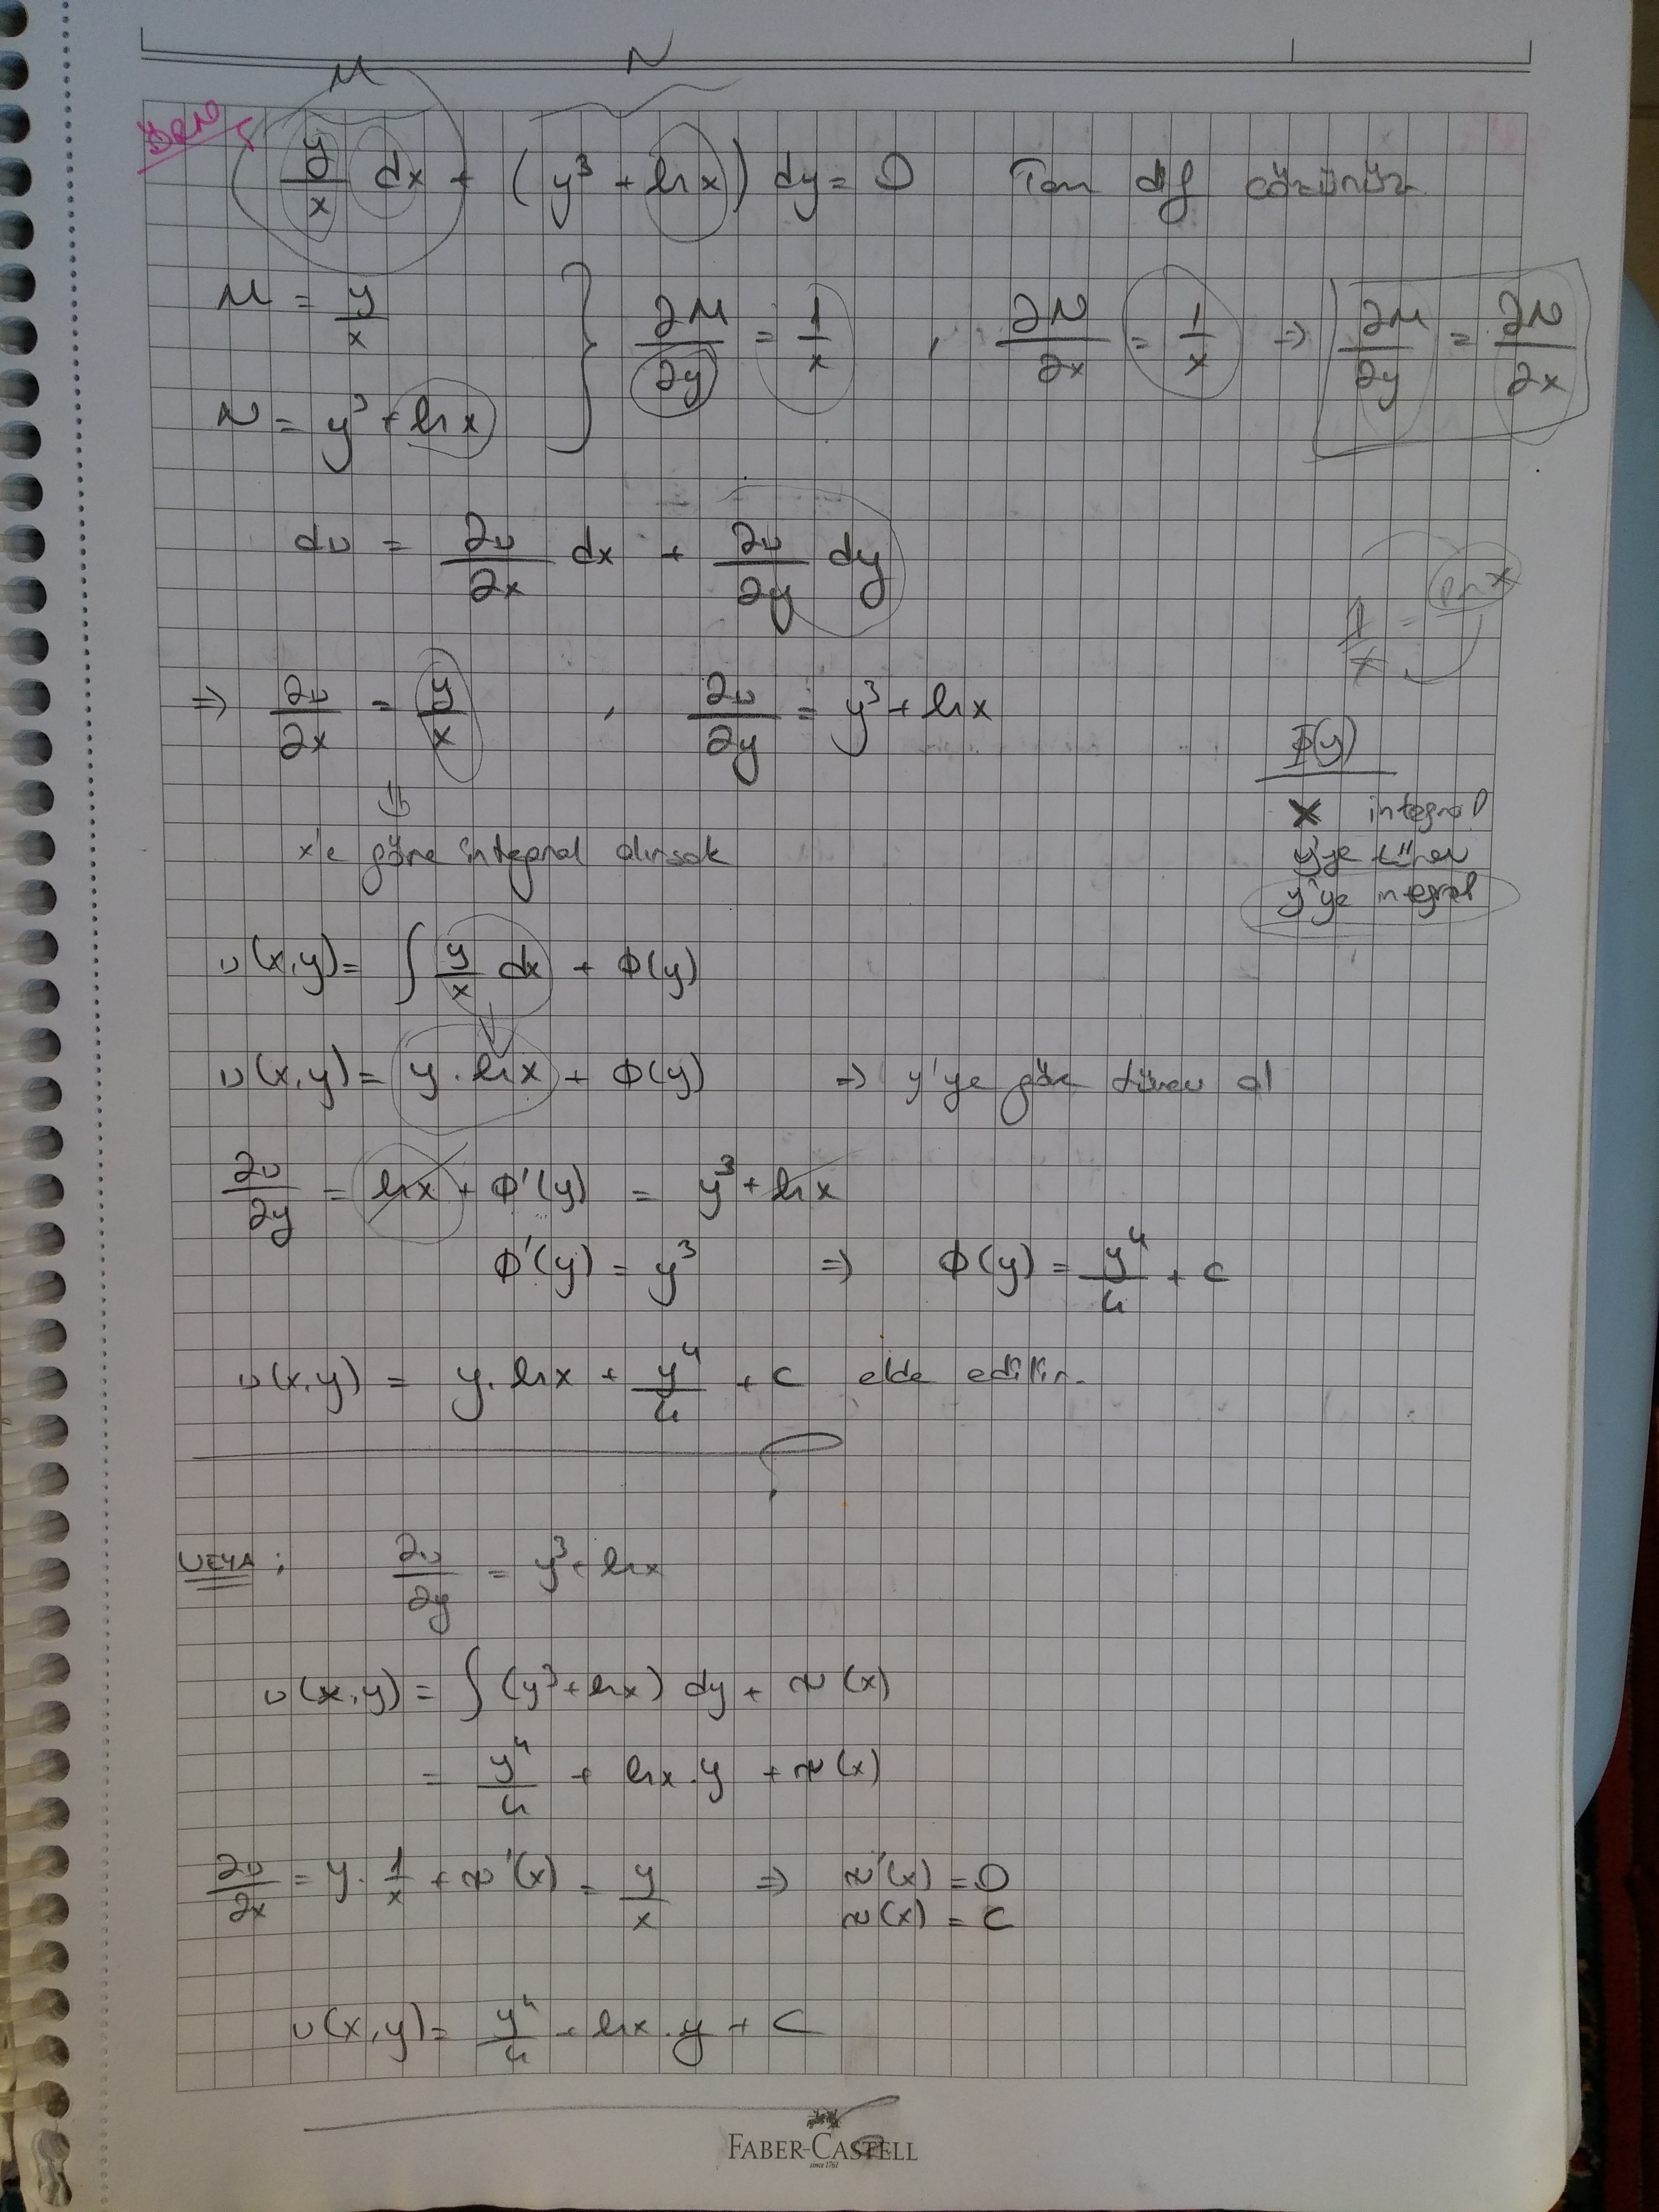 M N
y/x dx + (y³ + ln x) dy = 0 Tam dif çözünüz
M = y/x
N = y³ + ln x } ∂M/∂y = 1/x , ∂N/∂x = 1/x ⇒ ∂M/∂y = ∂N/∂x
du = ∂u/∂x dx + ∂u/∂y dy
1/x = ln x
⇒ ∂u/∂x = y/x , ∂u/∂y = y³ + ln x
⇓
x'e göre integral alırsak
Φ(y)
x integral
y'ye türev
y'ye integral
u(x,y) = ∫ y/x dx + Φ(y)
u(x,y) = y . ln x + Φ(y) ⇒ y'ye göre türev al
∂u/∂y = ln x + Φ'(y) = y³ + ln x
Φ'(y) = y³ ⇒ Φ(y) = y⁴/4 + c
u(x,y) = y . ln x + y⁴/4 + c elde edilir.
VEYA : ∂u/∂y = y³ + ln x
u(x,y) = ∫ (y³ + ln x) dy + ψ(x)
= y⁴/4 + ln x . y + ψ(x)
∂u/∂x = y . 1/x + ψ'(x) = y/x ⇒ ψ'(x) = 0
ψ(x) = C
u(x,y) = y⁴/4 + ln x . y + C
FABER-CASTELL
since 1761